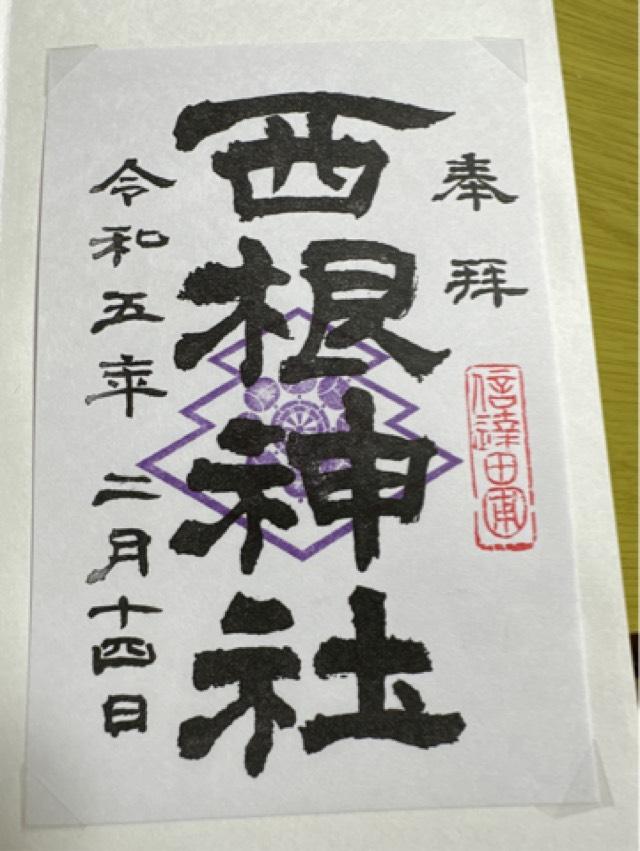 奉拝
信達田甫
西根神社
令和五年 二月十四日